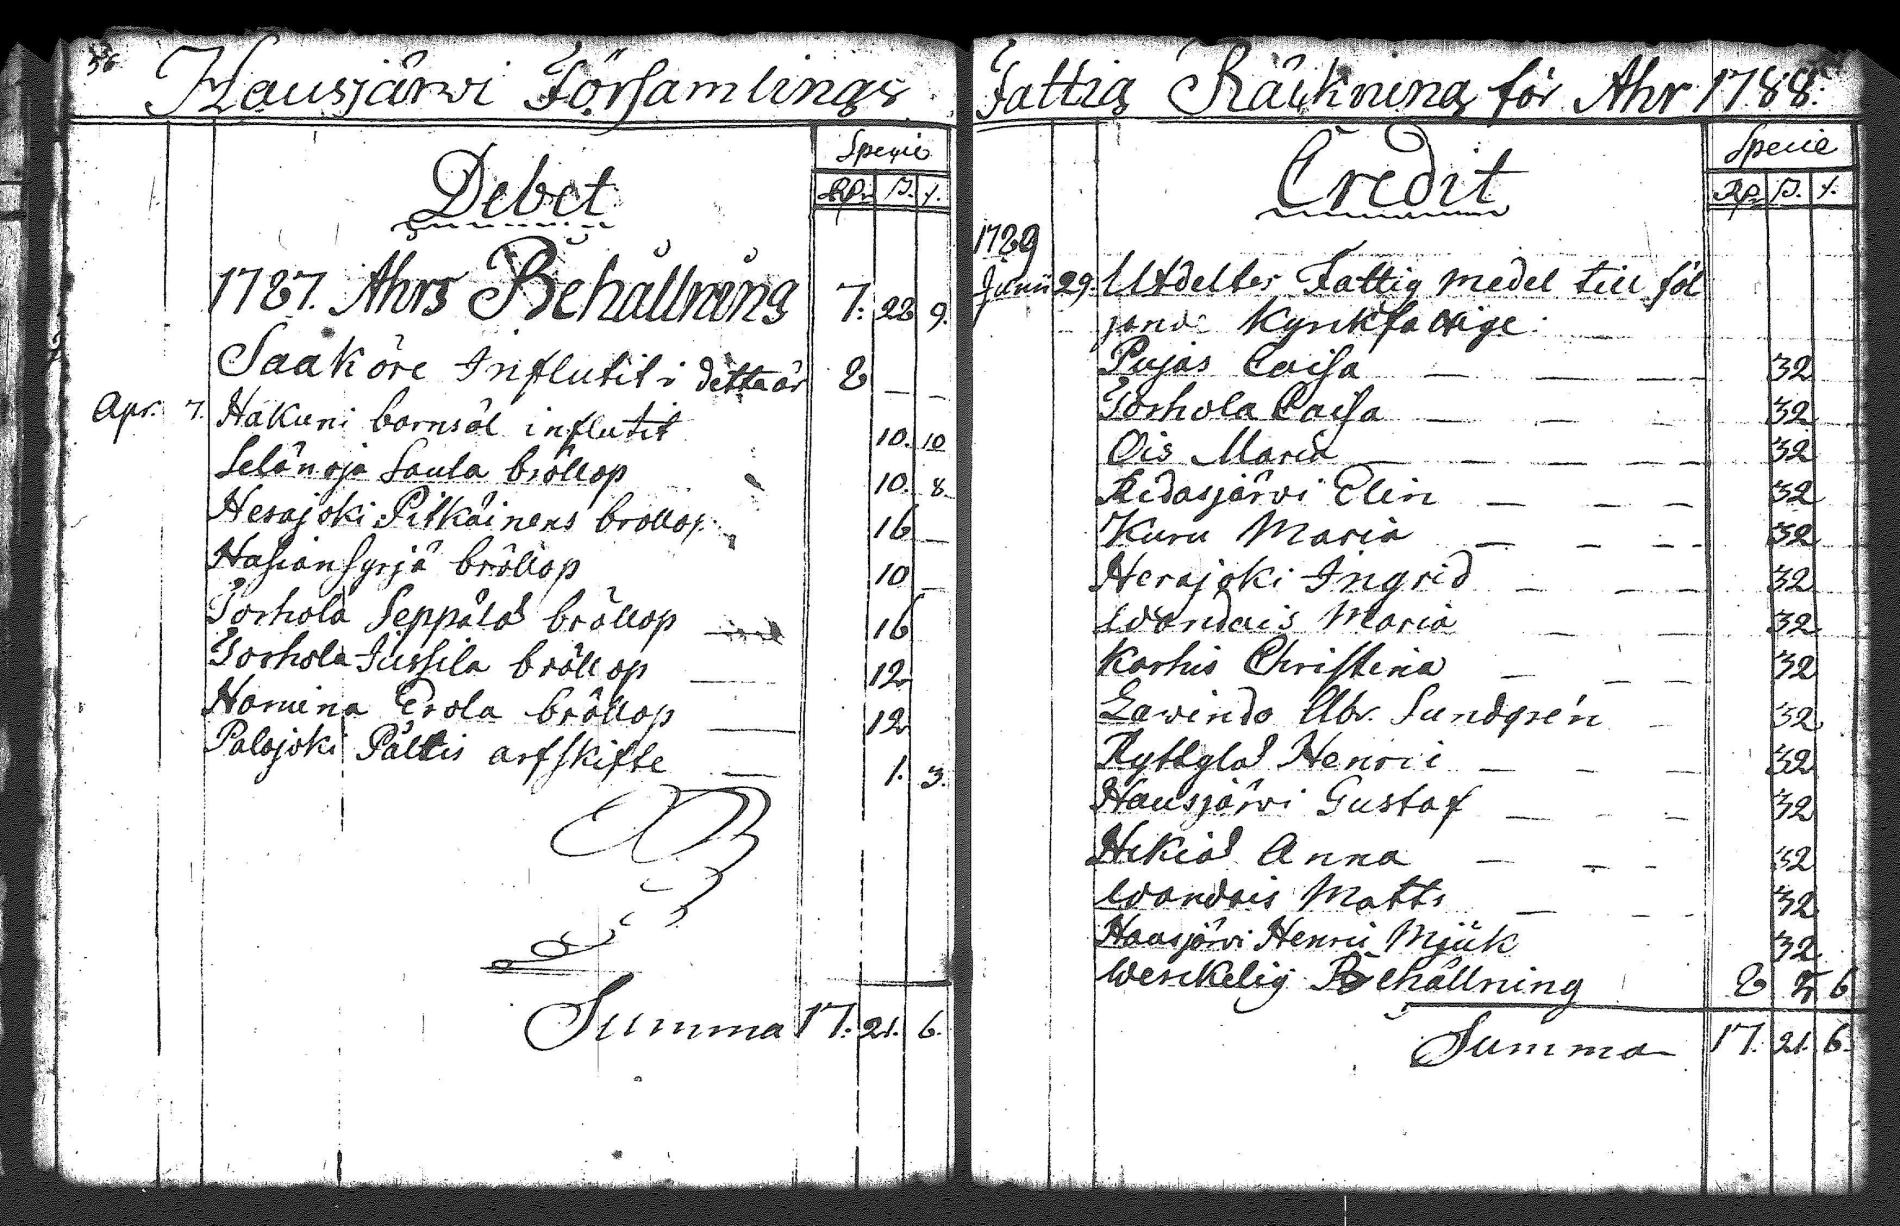 56
Hausjärwi Församlings
Debet
Specie
Rdr ß. r.
1787. Ahrs Behållning 7. 22 9.
Saaköre Influtit i detta år 8 — —
Apr. 7. Hakuni barnsöl influtit 10. 10
Selänoja Saula bröllop 10. 8
Herajoki Pitkäinens bröllop 16 —
Hasiansyrjä bröllop 10 —
Torhola Seppälä bröllop — 16
Torhola Jussila bröllop — 12
Hamina Erola bröllop — 12
Palojoki Pältis arfskifte — 1. 3.
Summa 17. 21. 6.
Fattig Räkning för Ahr 1788.
Credit
Specie
Rdr ß. r.
1789
Junii 29. Utdeltes Fattig medel till föl
jande Kyrkfattige
Pujas Caisa — — — 32
Torhola Caisa — — — 32
Ois Maria — — — 32
Ridasjärvi Elin — — — 32
Kuru Maria — — — 32
Herajoki Ingrid — — — 32
Wandais Maria — — 32
Karhis Christina — — — 32
Lavindo Abr. Sundgrén — 32
Ryttylä Henric — — — 32
Hausjärwi Gustaf — — — 32
Hikiä Anna — — — 32
Wandais Matts — — — 32
Hausjärwi Henric Mjuk 32
Werckelig Behållning 8 5 6
Summa 17. 21. 6.